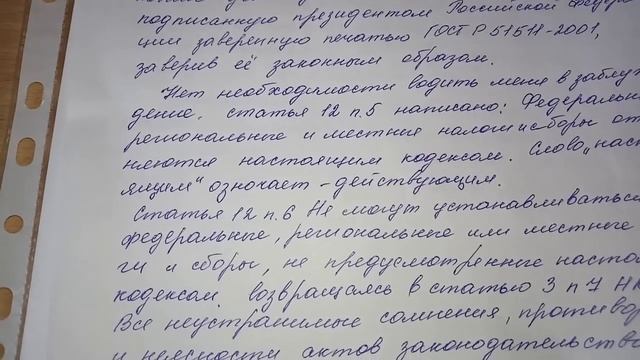 подписанную президентом Российской Федера
ции заверенную печатью ГОСТ Р 51511-2001,
заверив её законным образом.
Нет необходимости водить меня в заблуж
дение, статья 12 п.5 написано: Федеральн
региональные и местные налоги и сборы от
няются настоящим кодексом. Слово „наст
ящим" означает - действующим.
Статья 12 п.6 Не могут устанавливаться
федеральные, региональные или местные
ги и сборы, не предусмотренные насто
кодексом. возвращаясь в статью 3 п 7 НК
Все неустранимые сомнения, противор
и неясности актов законодательств